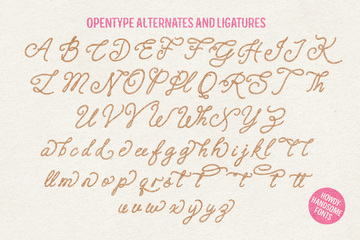 OPENTYPE ALTERNATES AND LIGATURES
A B C D E F F G H I J K
L M N O P Pl Q R S T Th
U V V W Wh X Y Z
a b c d d e e f g g h h i j k l l
ll m n o p q r s t t tt
u v w x y z
HOWDY,
HANDSOME
FONTS